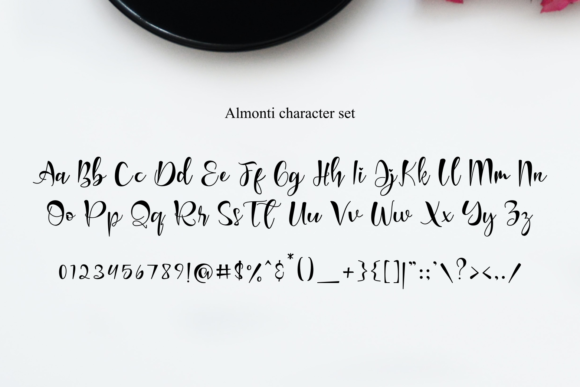 Almonti character set
Aa Bb Cc Dd Ee Ff Gg Hh Ii Jj Kk Ll Mm Nn
Oo Pp Qq Rr Ss Tt Uu Vv Ww Xx Yy Zz
0123456789!@#$%^&*()_+}{[]|":;'\?><,./